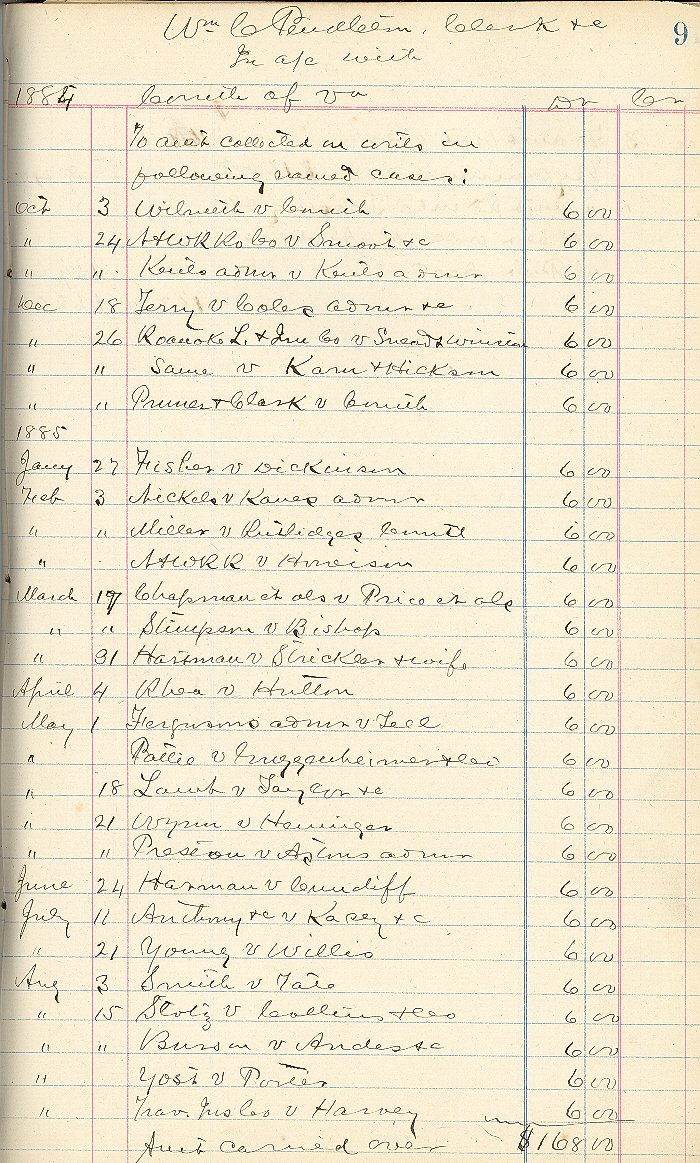 Wm C Pendleton, Clerk &c 9
In a/c with
1884 Comth of Va Dr Cr
To amt collected on writs in
following named cases:
Oct 3 Wilmeth v Comth 6 00
" 24 N&WRR Co v Smoot &c 6 00
" " admr v admr 6 00
Dec 18 Terry v Coles admr &c 6 00
" 26 Roanoke L. & Im Co v Snead & Winston 6 00
" " Same v Karn & Hickson 6 00
" " Pruner & Clark v Comth 6 00
1885
Jany 27 Fisher v Dickinson 6 00
Feb 3 Nickels v Kanes admr 6 00
" " Miller v Rutledges Comtt 6 00
" N&WRR v Howison 6 00
March 17 Chapman et als v Price et als 6 00
" " Stimpson v Bishop 6 00
" 31 Harman v Strickler & wife 6 00
April 4 Rhea v Hutton 6 00
May 1 Fergusons admr v Teel 6 00
" Pattie v Guggenheimer & Co 6 00
" 18 Lamb v Taylor &c 6 00
" 21 Wynn v Heninger 6 00
" " Preston v admr 6 00
June 24 Harman v Cundiff 6 00
July 11 Anthony &c v Kasey &c 6 00
" 21 Young v Willis 6 00
Aug 3 Smith v Tate 6 00
" 15 Stotz v Collins & Co 6 00
" " Burson v Andes &c 6 00
" Yost v Porter 6 00
" Trav. Ins Co v Harvey 6 00
Amt carried over $168 00